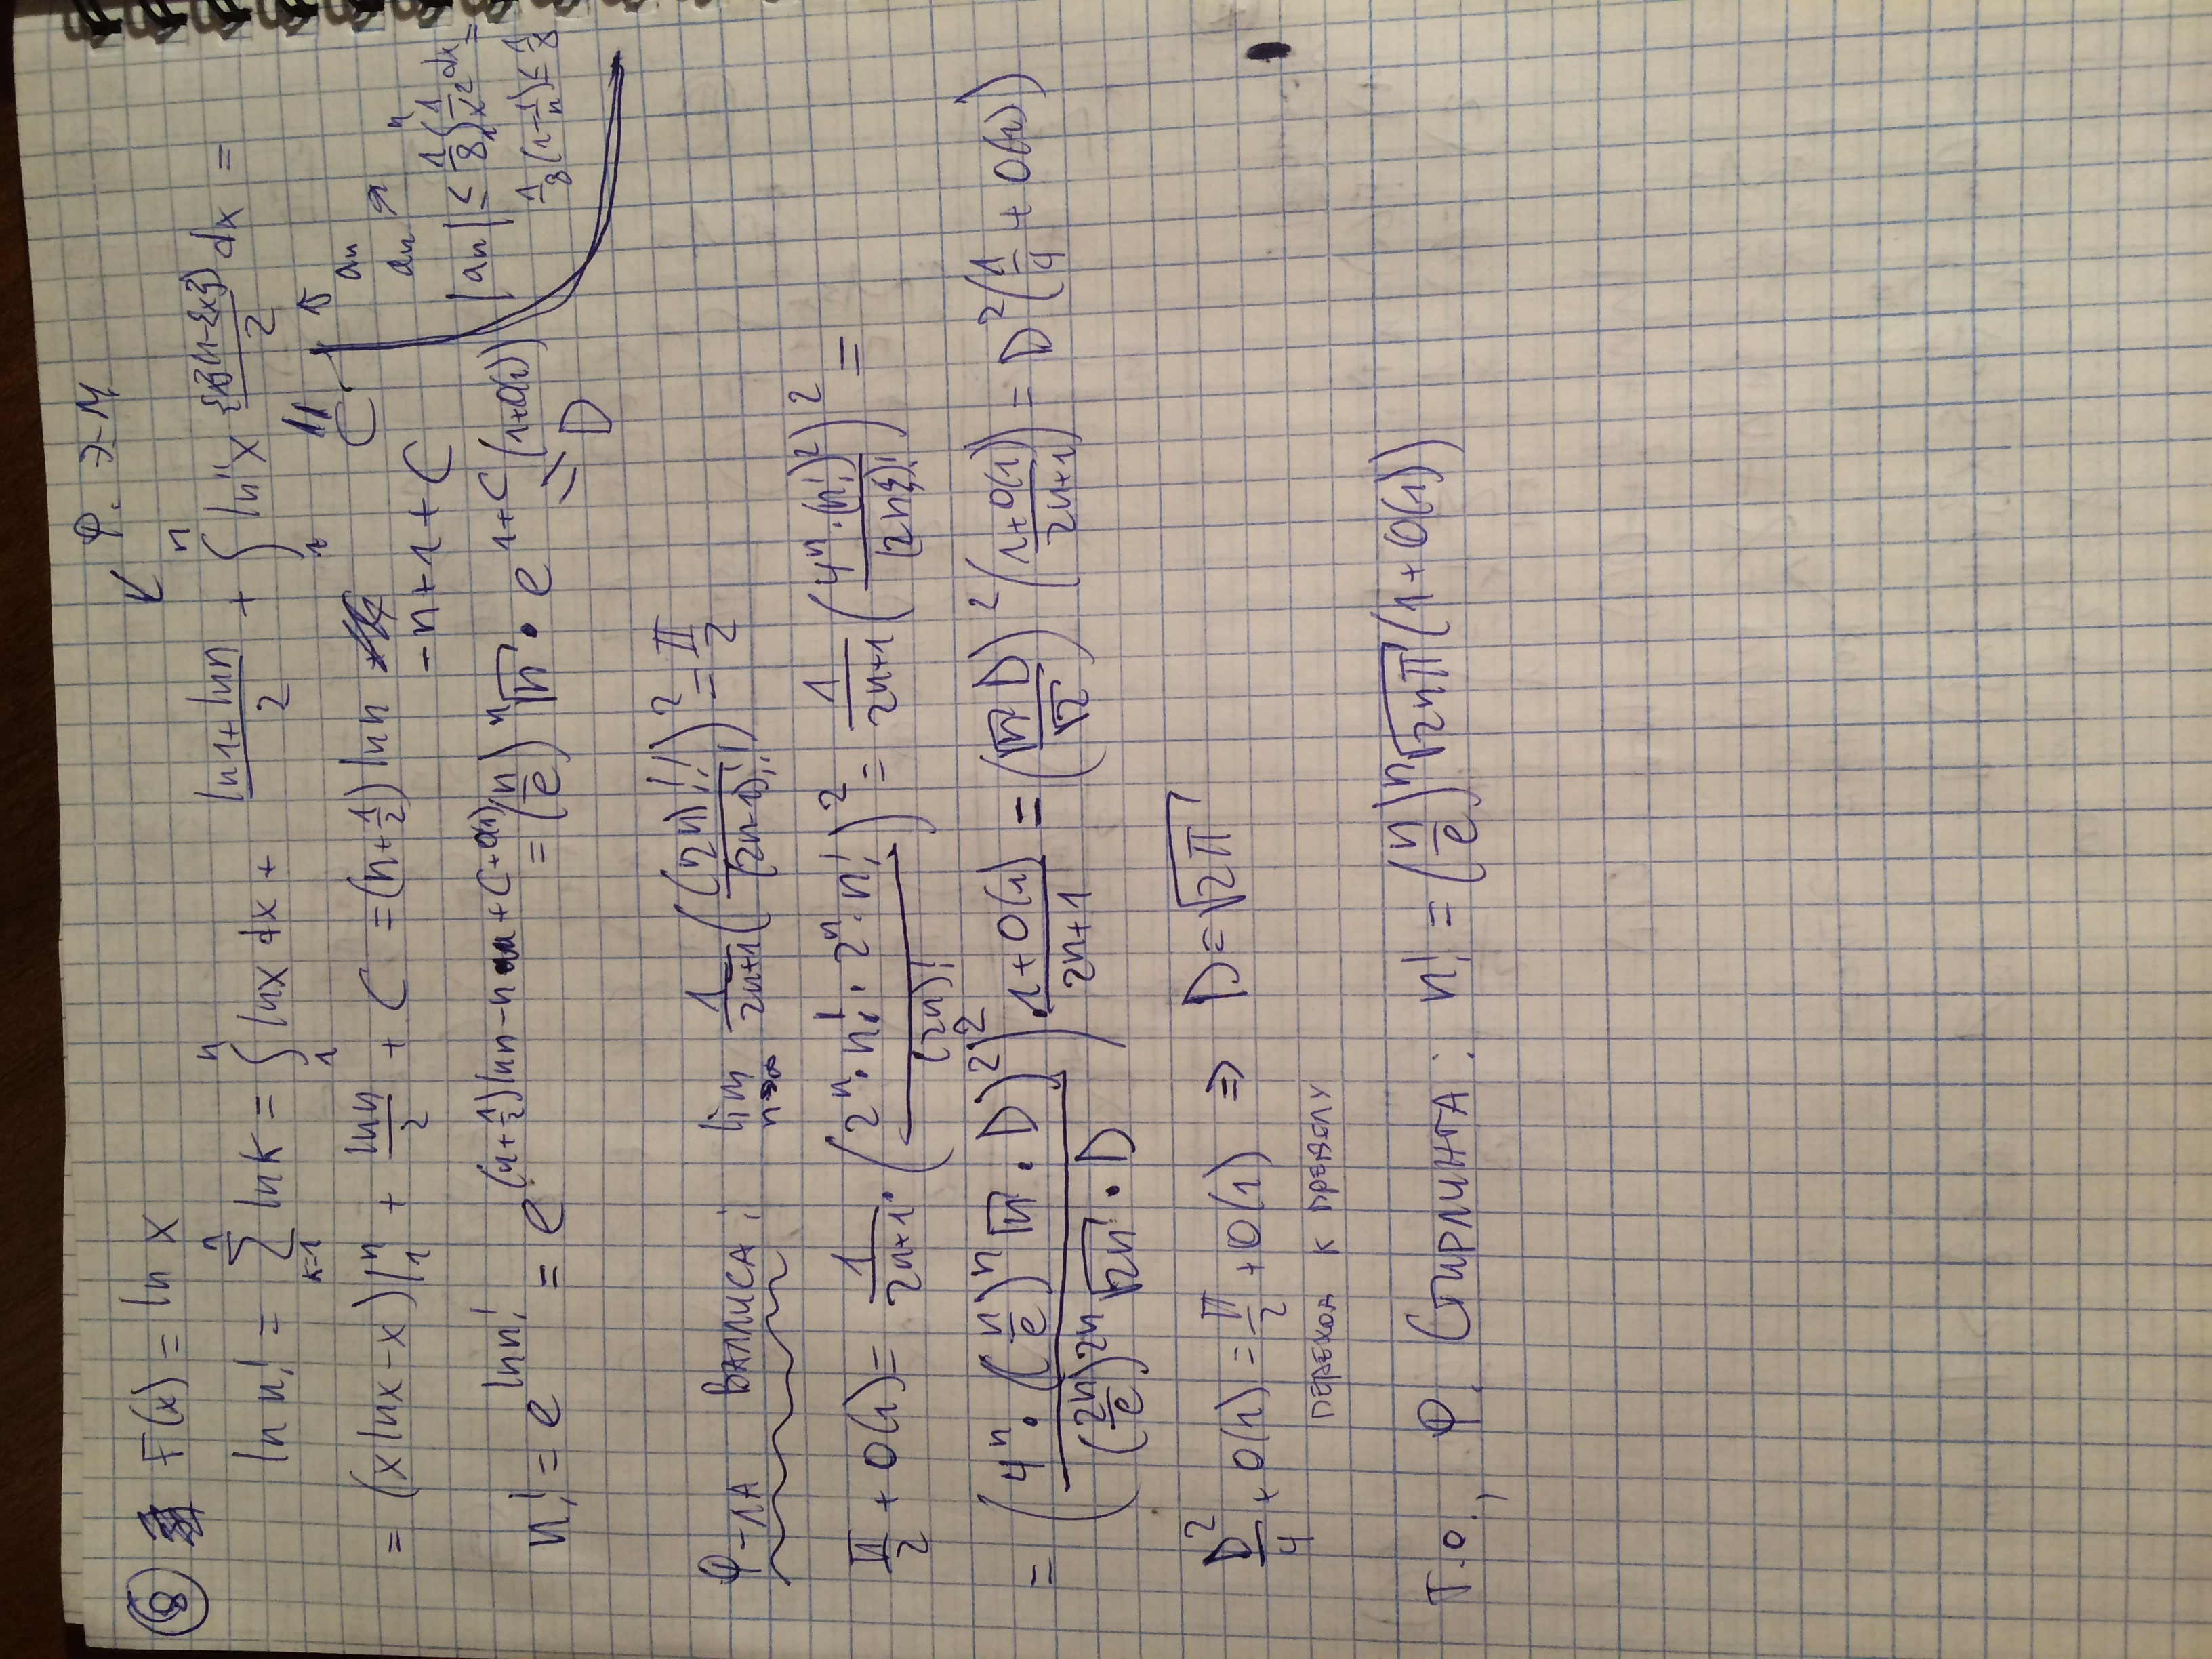 Ф. Э-М
⑧ F(x) = ln x
ln n! = ∑_{k=1}^{n} ln k = ∫_1^n ln x dx + (ln 1 + ln n)/2 + ∫_1^n ln'' x ({x}(1-{x}))/2 dx =
= (x ln x - x)|_1^n + (ln n)/2 + C = (n + 1/2) ln n
- n + 1 + C
|| C
a_n
a_n ↗
|a_n| ≤ 1/8 ∫_1^n 1/x² dx =
1/8 (1 - 1/n) ≤ 1/8
n! = e^{ln n!} = e^{(n + 1/2) ln n - n + C + o(1)} = (n/e)^n √n · e^{1+C} (1 + o(1))
= D
Ф-ЛА ВАЛЛИСА: lim_{n→∞} 1/(2n+1) ((2n)!!/(2n-1)!!)² = π/2
π/2 + o(1) = 1/(2n+1) · ((2^n · n! · 2^n · n!)/(2n)!)² = 1/(2n+1) ((4^n · (n!)²)/(2n)!)² =
= ((4^n · ((n/e)^n √n · D)²)/((2n/e)^{2n} √2n · D))² · (1 + o(1))/(2n+1) = (√n D/√2)² ((1 + o(1))/(2n+1)) = D² (1/4 + o(1))
D²/4 + o(1) = π/2 + o(1) ⇒ D = √2π
ПЕРЕХОД К ПРЕДЕЛУ
Т.о., Ф. СТИРЛИНГА: n! = (n/e)^n √2nπ (1 + o(1))